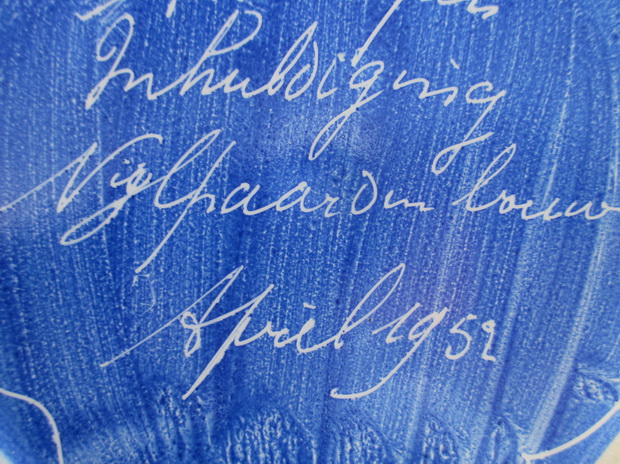 Inhuldiging
Nijlpaarden bouw
April 1952